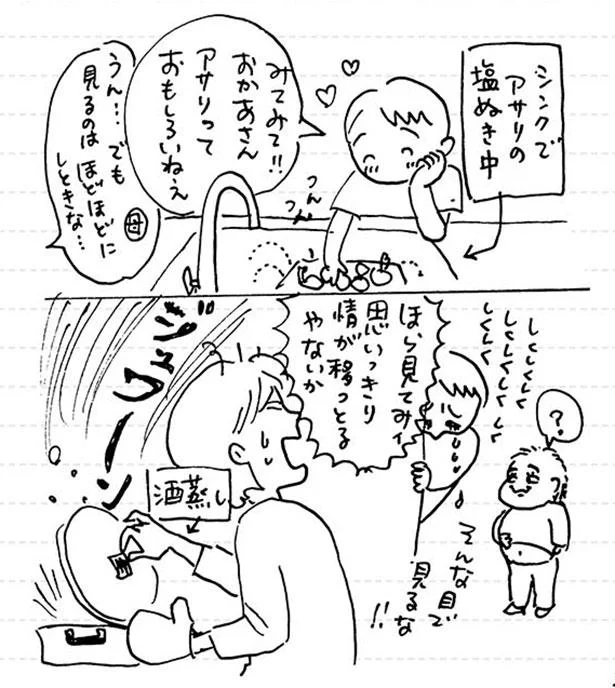 シンクで
アサリの
塩ぬき中
みてみて!!
おかあさん
アサリって
おもしろいねぇ
つん
つん
うん…でも
見るのはほどほどに
しときな…
母
しくしく
しくしくしく
しくしく
?
ほら見てみィ
思いっきり
情が移っとる
やないか
ジュワーン
酒蒸し
そんな目で
見るな
!!